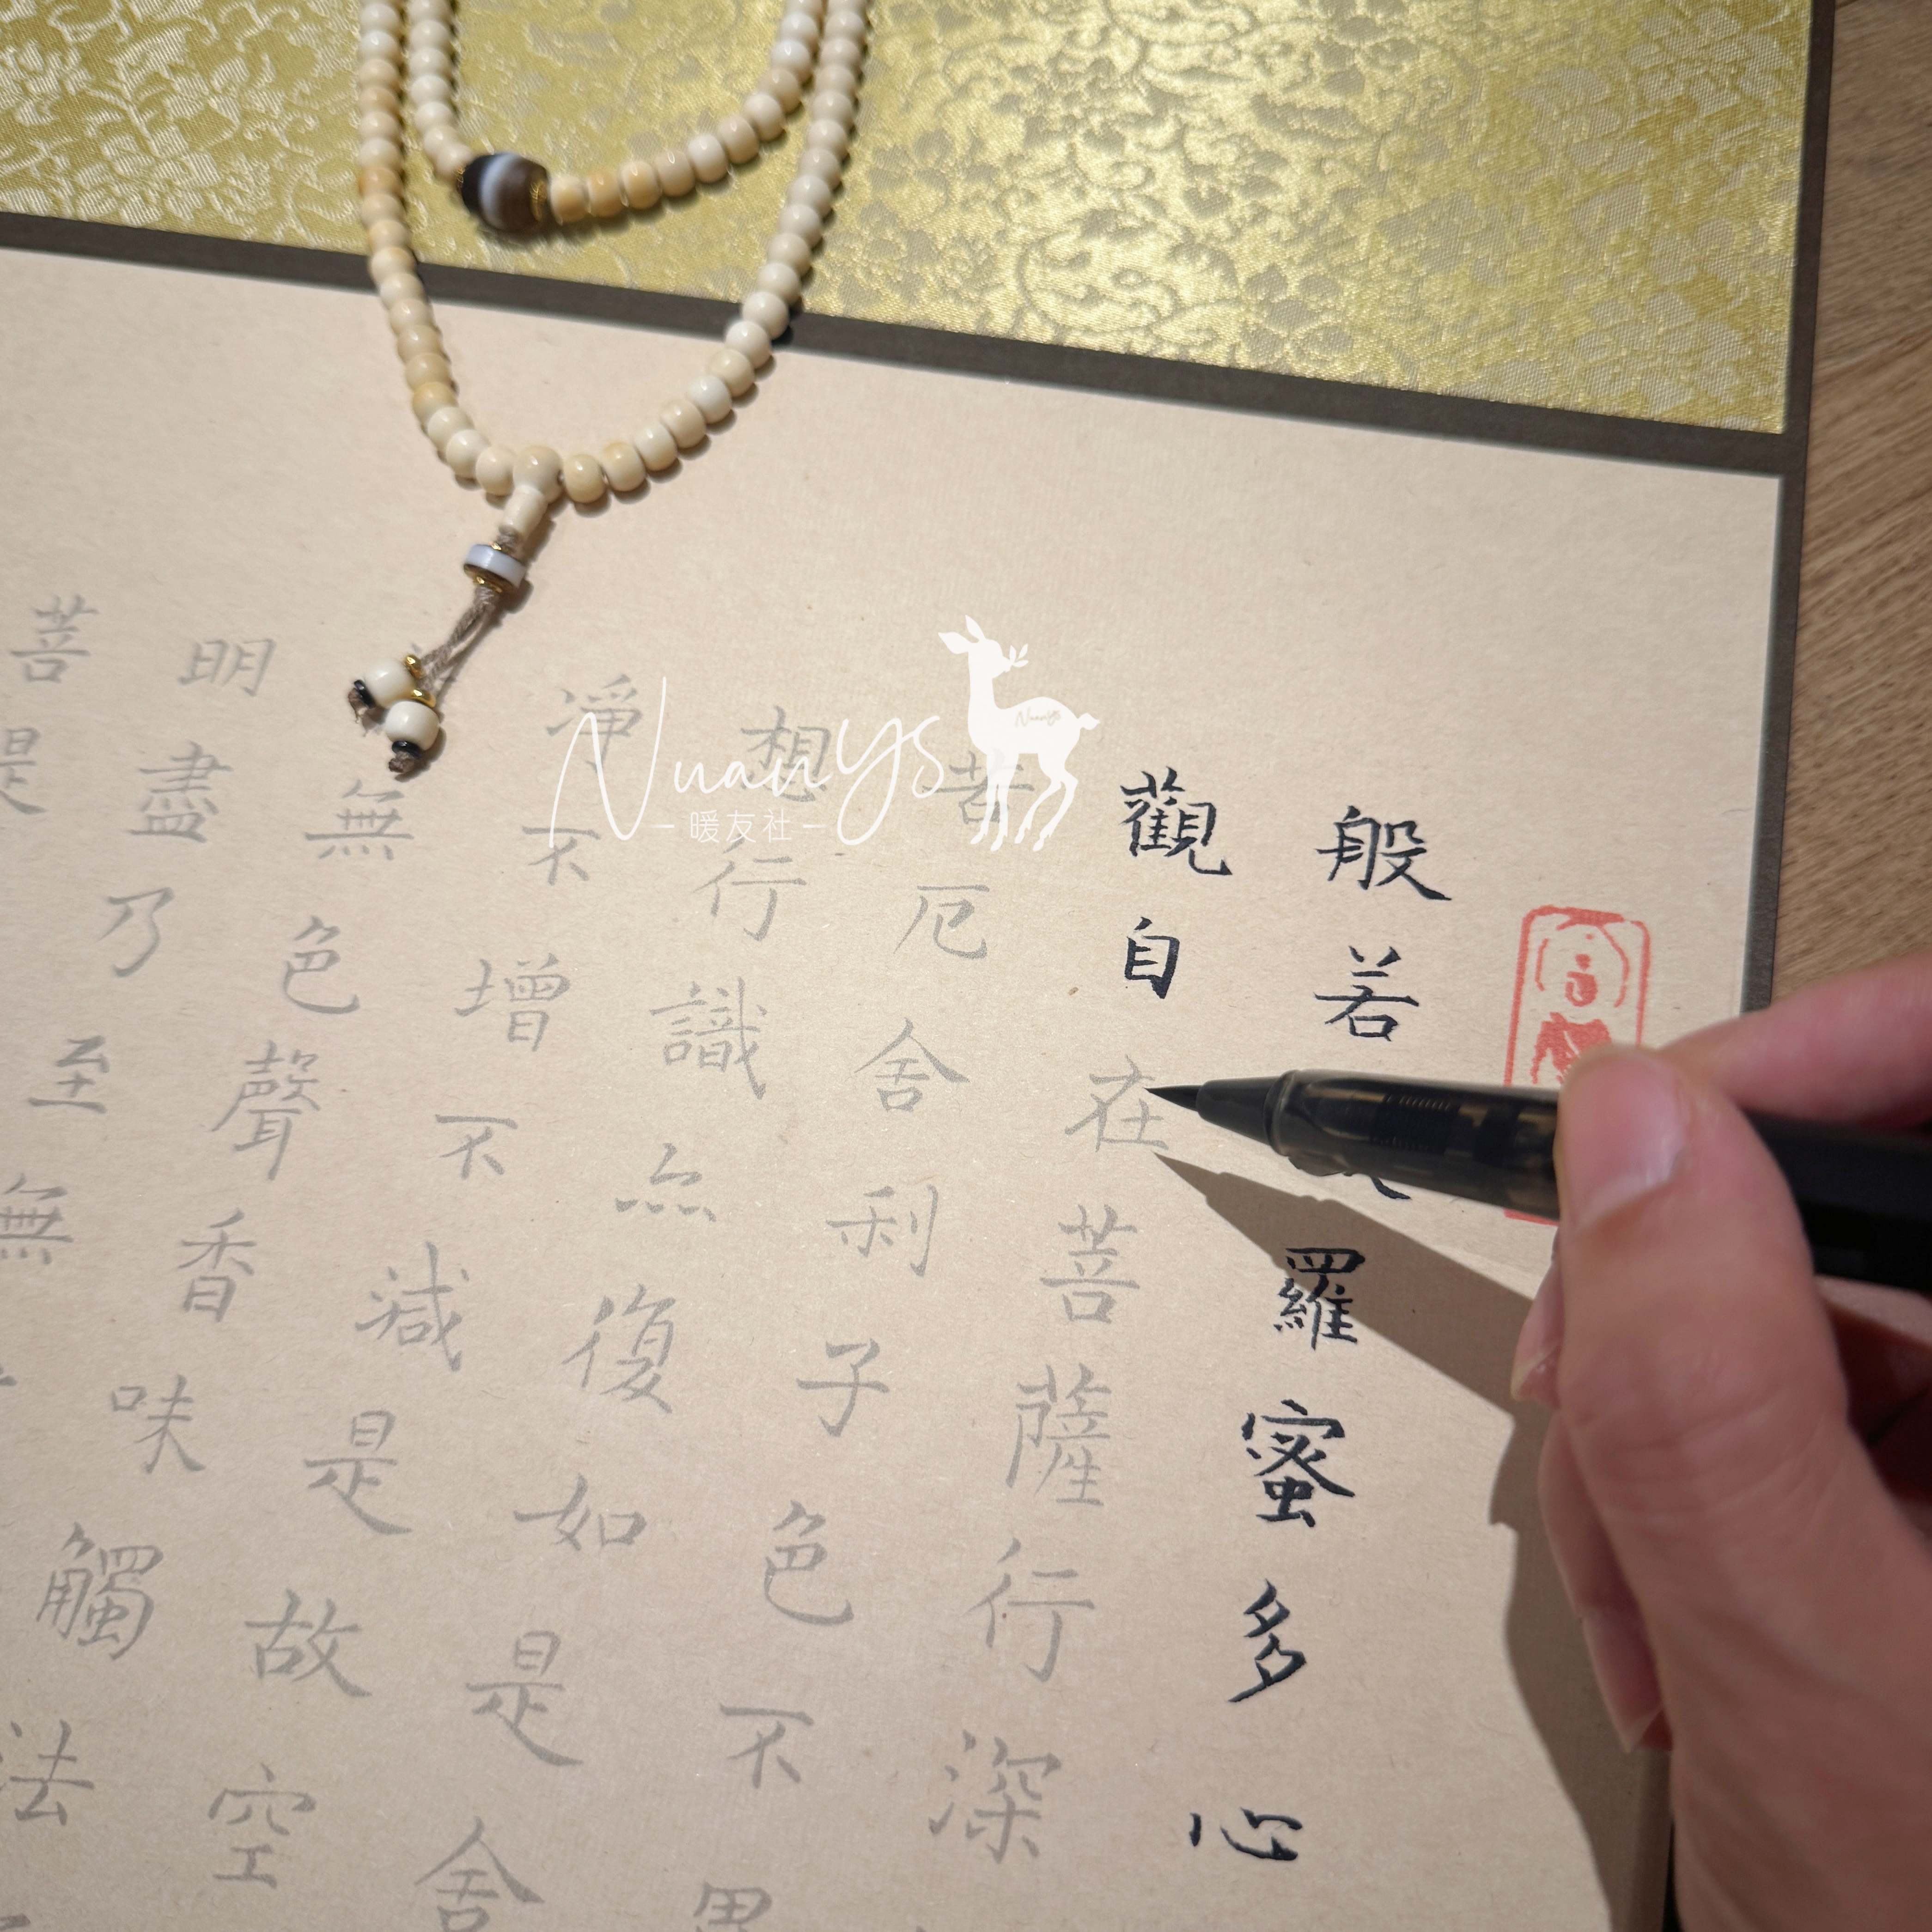 般若羅蜜多心
觀自在菩薩行深
苦厄舍利子色不
想行識亦復如是舍
淨不增不減是故空
無色聲香味觸法
明盡乃至無
菩
Nuanys
暖友社
Nuanys